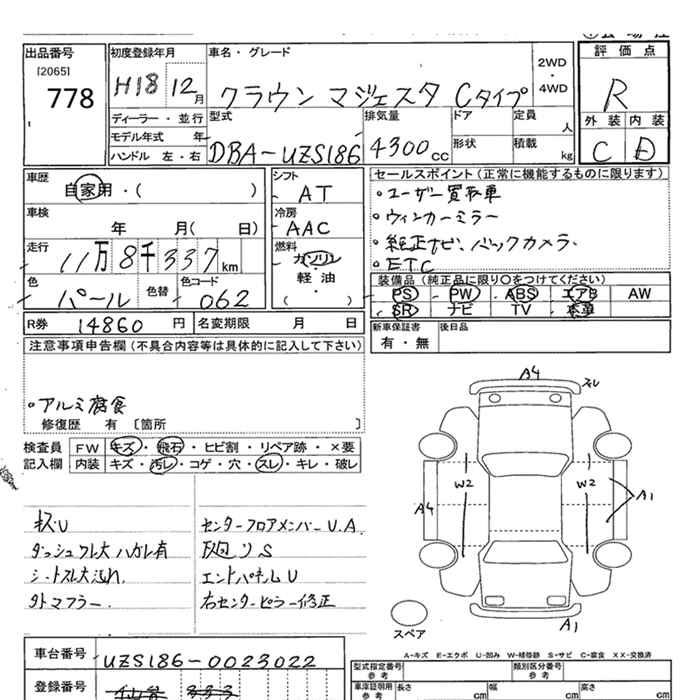 出品番号
[2065]
778
初度登録年月
H18 12月
車名・グレード
クラウン マジェスタ Cタイプ
2WD
・
4WD
評価点
R
外装 内装
C D
ディーラー・並行
モデル年式 年
ハンドル 左・右
型式
DBA-UZS186
排気量
4300cc
ドア
形状
定員
人
積載
kg
車歴
自家用・( )
車検
年 月( 日)
走行
11万8千337km
色
パール
色替
色コード
062
シフト
AT
冷房
AAC
燃料
ガソリン
軽・油
( )
セールスポイント(正常に機能するものに限ります)
・ユーザー買取車
・ウィンカーミラー
・純正ナビ、バックカメラ.
・ETC
装備品(純正品に限り○をつけてください)
PS PW ABS エアB AW
SR ナビ TV 本革
R券 14860円
名変期限 月 日
新車保証書
有・無
後日品
注意事項申告欄(不具合内容等は具体的に記入して下さい)
・アルミ腐食
修復歴 有 〔箇所 〕
検査員
記入欄
FW キズ・飛石・ヒビ割・リペア跡・×要
内装 キズ・汚レ・コゲ・穴・スレ・キレ・破レ
ダッシュワレ大 ハガレ有
シートスレ大 汚れ
タトマフラー
センターフロアメンバーU.A.
エンドパネルU
右センターピラー修正
A4
W2
W2
A4
A1
A1
スペア
A-キズ E-エクボ U-凹み W-補修跡 S-サビ C-腐食 XX-交換済
車台番号
UZS186-0023022
登録番号
型式指定番号
参考
類別区分番号
参考
車庫証明用
参考
長さ
cm
幅
cm
高さ
cm